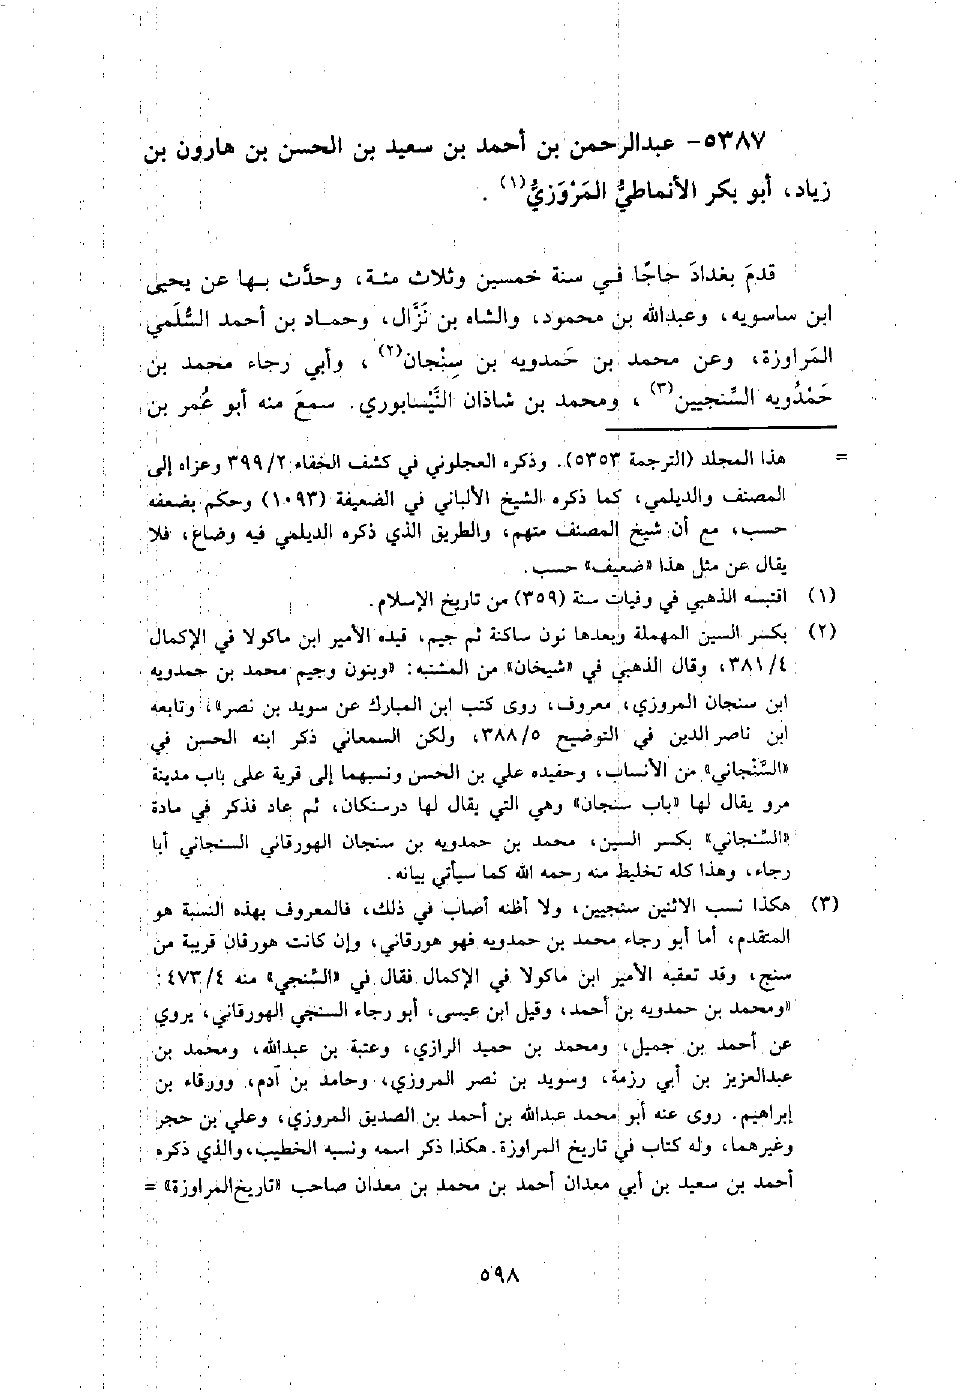 ٥٣٨٧- عبدالرحمن بن أحمد بن سعيد بن الحسن بن هارون بن
زياد، أبو بكر الأنماطيُّ المَرْوَزيُّ(١) .
قدمَ بغدادَ حاجًا في سنة خمسين وثلاث مئة، وحدَّث بها عن يحيى
ابن ساسويه، وعبدالله بن محمود، والشاه بن نَزَّال، وحماد بن أحمد السُّلَمي
المَراوزة، وعن محمد بن حَمدويه بن سِنْجان(٢) ، وأبي رجاء محمد بن
حَمْدُويه السِّنجيين(٣) ، ومحمد بن شاذان النَّيْسابوري. سمعَ منه أبو عُمر بن
= هذا المجلد (الترجمة ٥٣٥٣). وذكره العجلوني في كشف الخفاء ٣٩٩/٢ وعزاه إلى
المصنف والديلمي، كما ذكره الشيخ الألباني في الضعيفة (١٠٩٣) وحكم بضعفه
حسب، مع أن شيخ المصنف متهم، والطريق الذي ذكره الديلمي فيه وضاع، فلا
يقال عن مثل هذا «ضعيف» حسب.
(١) اقتبسه الذهبي في وفيات سنة (٣٥٩) من تاريخ الإسلام.
(٢) بكسر السين المهملة وبعدها نون ساكنة ثم جيم، قيده الأمير ابن ماكولا في الإكمال
٣٨١/٤، وقال الذهبي في «شيخان» من المشتبه: «وبنون وجيم محمد بن حمدويه
ابن سنجان المروزي، معروف، روى كتب ابن المبارك عن سويد بن نصر»، وتابعه
ابن ناصر الدين في التوضيح ٣٨٨/٥، ولكن السمعاني ذكر ابنه الحسن في
«السَّنْجاني» من الأنساب، وحفيده علي بن الحسن ونسبهما إلى قرية على باب مدينة
مرو يقال لها «باب سنجان» وهي التي يقال لها درسنكان، ثم عاد فذكر في مادة
«السِّنجاني» بكسر السين، محمد بن حمدويه بن سنجان الهورقاني السنجاني أبا
رجاء، وهذا كله تخليط منه رحمه الله كما سيأتي بيانه.
(٣) هكذا نسب الاثنين سنجيين، ولا أظنه أصاب في ذلك، فالمعروف بهذه النسبة هو
المتقدم، أما أبو رجاء محمد بن حمدويه فهو هورقاني، وإن كانت هورقان قريبة من
سنج، وقد تعقبه الأمير ابن ماكولا في الإكمال فقال في «السِّنجي» منه ٤٧٣/٤:
«ومحمد بن حمدويه بن أحمد، وقيل ابن عيسى، أبو رجاء السنجي الهورقاني، يروي
عن أحمد بن جميل، ومحمد بن حميد الرازي، وعتبة بن عبدالله، ومحمد بن
عبدالعزيز بن أبي رزمة، وسويد بن نصر المروزي، وحامد بن آدم، وورقاء بن
إبراهيم. روى عنه أبو محمد عبدالله بن أحمد بن الصديق المروزي، وعلي بن حجر
وغيرهما، وله كتاب في تاريخ المراوزة. هكذا ذكر اسمه ونسبه الخطيب، والذي ذكره
أحمد بن سعيد بن أبي معدان أحمد بن محمد بن معدان صاحب «تاريخ المراوزة» =
٥٩٨